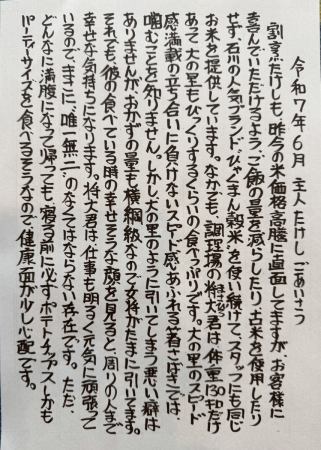 令和7年6月 主人 たけし ごあいさつ
割烹たけしも、昨今の米価格高騰に直面してますが、お客様に
喜んでいただけるよう、ご飯の量を減らしたり、古米を使用したり
せず、石川の人気ブランドひゃくまん穀米を使い続けて、スタッフにも同じ
お米を提供しています。なかでも、調理場の将大君は体重130キロだけ
あって大の里もびっくりするくらいの食べっぷりです。大の里のスピード
感満載の立ち合いに負けないスピード感あふれる箸さばきでは、
噛むことを知りません。しかし大の里のように引いてしまう悪い癖は
ありませんが、おかずの量も横綱級なので女将がたまに引いてます。
それでも、彼の食べている時の幸せそうな顔を見ると、周りの人まで
幸せな気持ちになります。将大君は仕事も明るく元気に頑張って
いるので、まさに、唯一無二のなくてはならない存在です。ただ、
どんなに満腹になって帰っても、寝る前に必ずポテトチップスしかも
パーティサイズを食べるそうなので健康面が少し心配です。